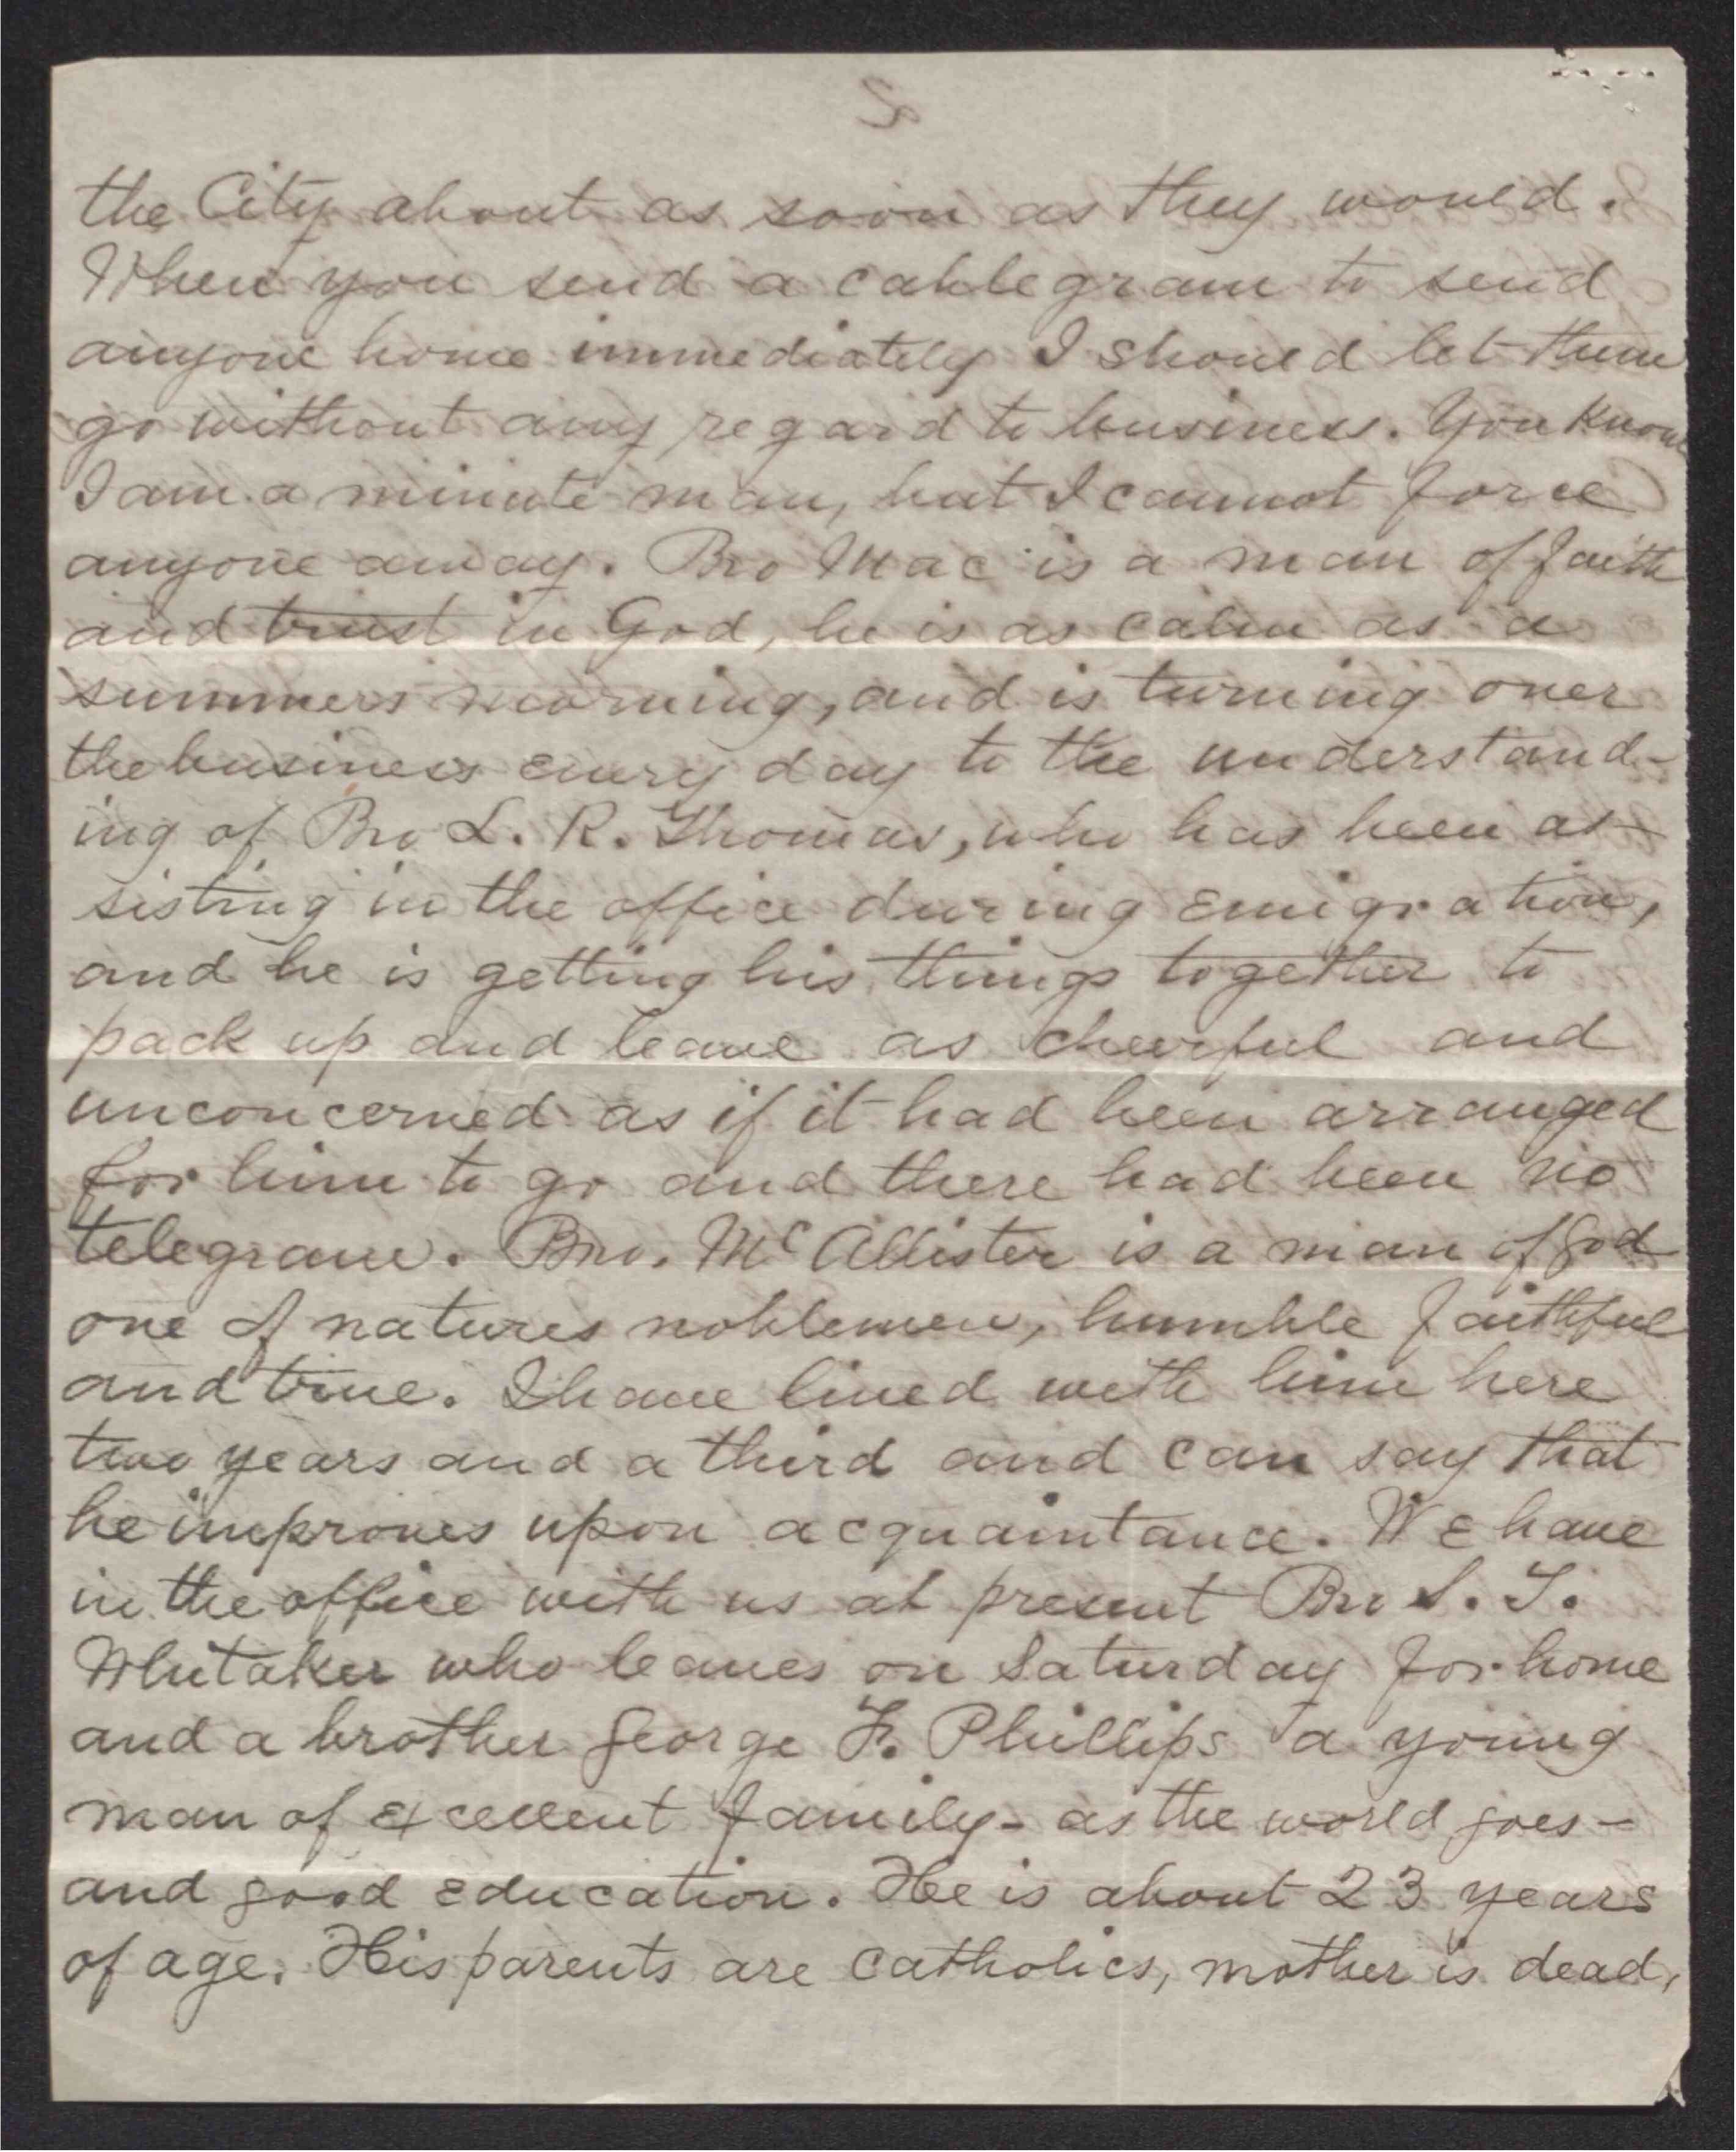 5
the City about as soon as they would.
When you send a cablegram to send
anyone home immediately I should let them
go without any regard to business. You know
I am a minute man, but I cannot force
anyone away. Bro Mac is a man of faith
and trust in God, he is as calm as a
summers morning, and is turning over
the business every day to the understand-
ing of Bro L. R. Thomas, who has been as-
sisting in the office during emigration,
and he is getting his things together to
pack up and leave as cheerful and
unconcerned as if it had been arranged
for him to go and there had been no
telegram. Bro. McAllister is a man of God
one of natures noblemen, humble faithful
and true. I have lived with him here
two years and a third and can say that
he improves upon acquaintance. We have
in the office with us at present Bro S. T.
Whitaker who leaves on Saturday for home
and a brother George F. Phillips a young
man of excellent family - as the world goes -
and good education. He is about 23 years
of age. His parents are catholics, mother is dead,